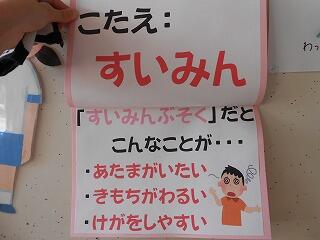 こたえ:
すいみん
「すいみんぶそく」だと
こんなことが・・・
・あたまがいたい
・きもちがわるい
・けがをしやすい
わっ